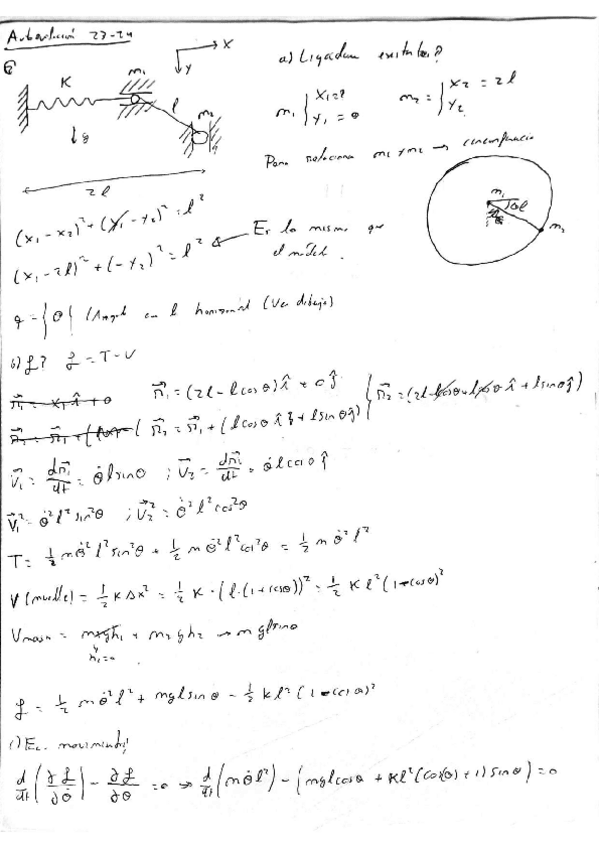 Autoevaluación 23-24
K
m₁
l
m₂
↓g
2l
→ X
↓ Y
a) Ligaduras existentes?
m₁ { X₁ = ?
Y₁ = 0
m₂ = { X₂ = 2l
Y₂
Para relacionar m₁ y m₂ → circunferencia
m₁
θ
l
m₂
(x₁ - x₂)² + (y₁ - y₂)² = l²
(x₁ - 2l)² + (-y₂)² = l² ← Es lo mismo que
el módulo.
q = {θ} (Angulo con l horizontal (Ver dibujo)
b) L? L = T - U
r⃗₁ = (2l - l cosθ) î + 0 ĵ
r⃗₂ = r⃗₁ + (l cosθ î + l sinθ ĵ) { r⃗₂ = (2l - l cosθ + l cosθ î + l sinθ ĵ)
v⃗₁ = dr⃗₁/dt = θ̇ l sinθ ; v⃗₂ = dr⃗₂/dt = θ̇ l cosθ ĵ
v⃗₁² = θ̇² l² sin²θ ; v⃗₂² = θ̇² l² cos²θ
T = 1/2 m θ̇² l² sin²θ + 1/2 m θ̇² l² cos²θ = 1/2 m θ̇² l²
V (muelle) = 1/2 K Δx² = 1/2 K · (l·(1+cosθ))² = 1/2 K l² (1-cosθ)²
V masa = m₁gh₁ + m₂gh₂ → m g l sinθ
h₁=0
L = 1/2 m θ̇² l² + mgl sinθ - 1/2 K l² (1-cosθ)²
c) Ec. movimiento?
d/dt (∂L/∂θ̇) - ∂L/∂θ = 0 → d/dt (m θ̇ l²) - (mgl cosθ + K l² (cos(θ) + 1) sinθ) = 0